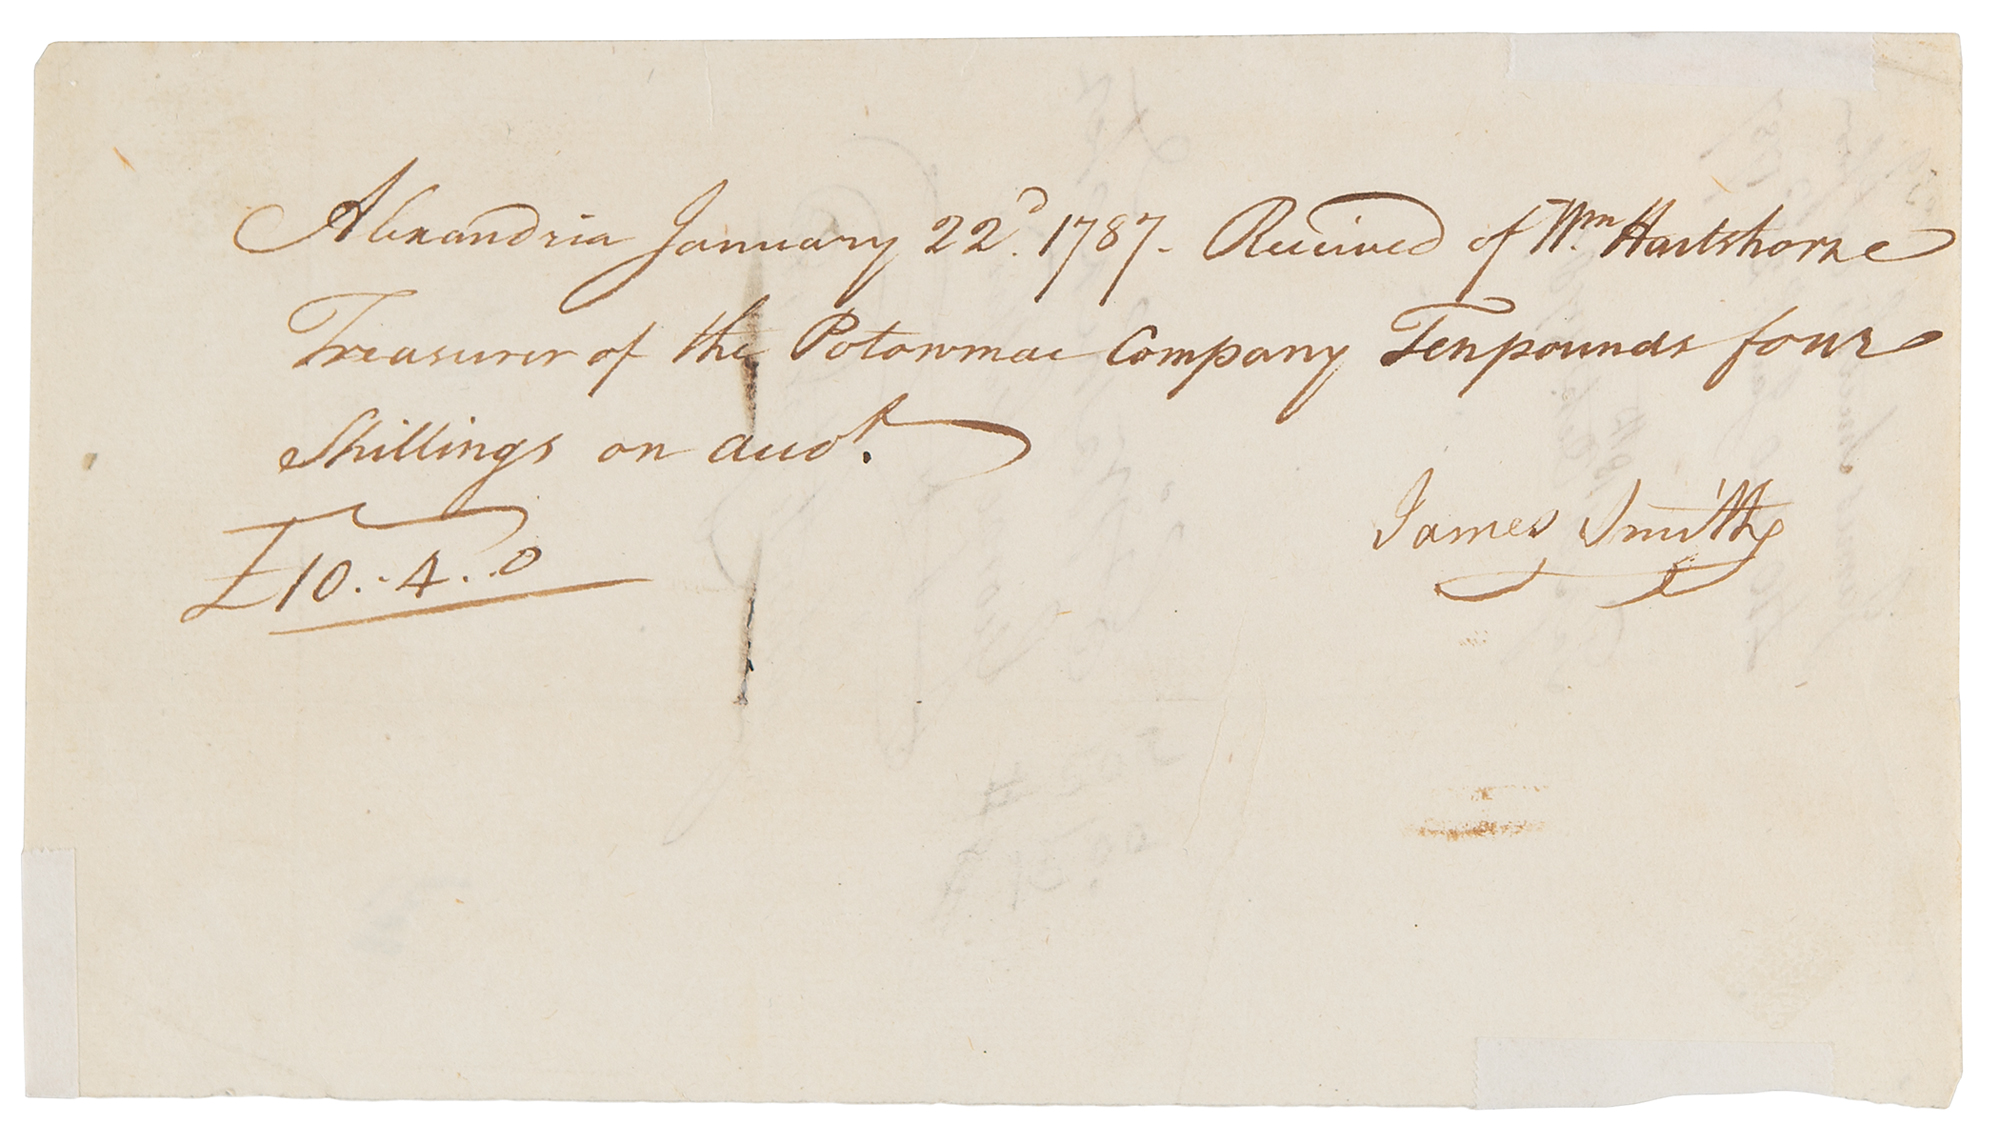 Alexandria January 22d. 1787- Received of Wm Hartshorne
Treasurer of the Potowmac Company Ten pounds four
Shillings on accot.
£10.-4..0
James Smith